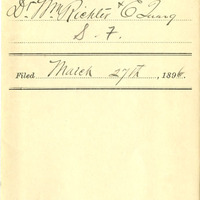 Dr Wm Richter & E Quarg
S. F.
Filed March 27th, 1896.